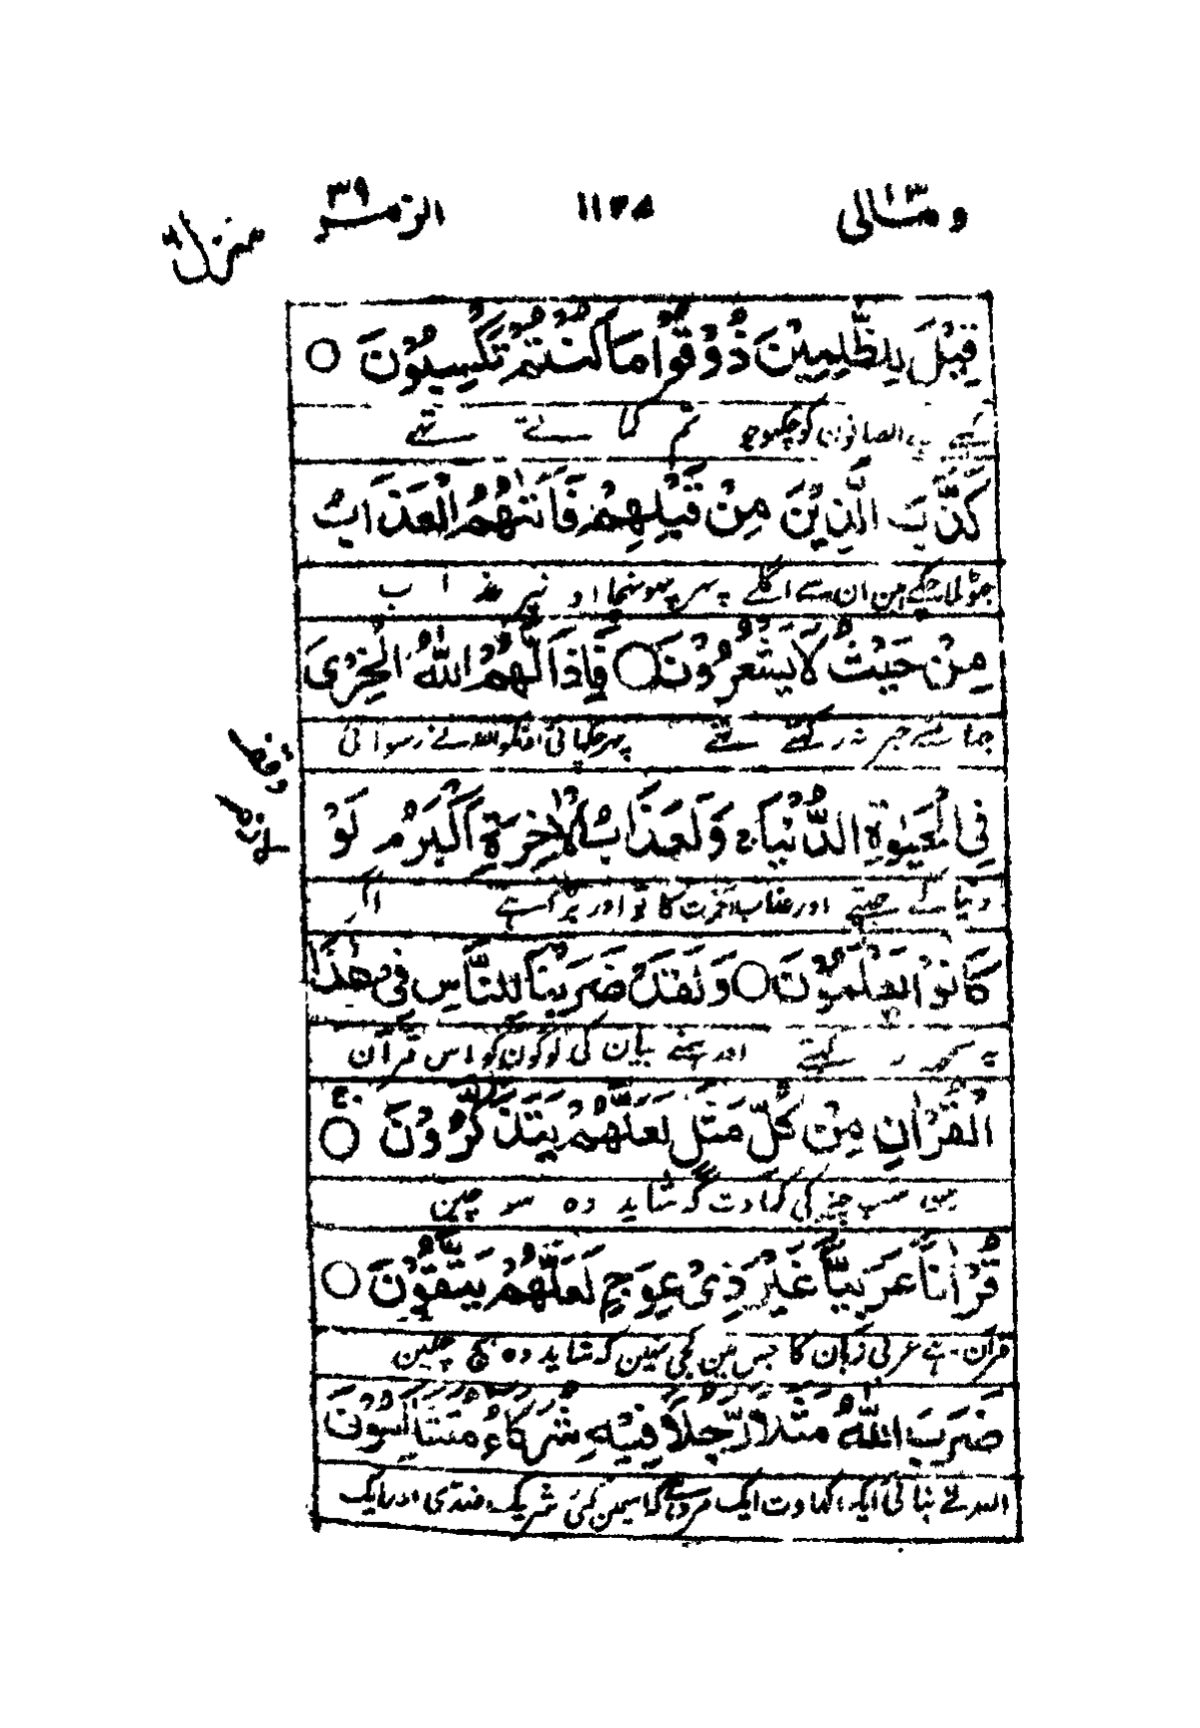 ومالی ٢٣ ١١٣٨ الزمر ٣٩
منزل ٦
قِيْلَ لِلظّٰلِمِيْنَ ذُوْقُوْا مَا كُنْتُمْ تَكْسِبُوْنَ ○
کہے بے انصافوں کو چکھو جو تم کما تے تھے
كَذَّبَ الَّذِيْنَ مِنْ قَبْلِهِمْ فَاَتٰىهُمُ الْعَذَابُ
جھوٹلا چکے ہین ان سے اگلے پہر پہونچا او نپر عذ ا ب
مِنْ حَيْثُ لَا يَشْعُرُوْنَ ○ فَاَذَاقَهُمُ اللّٰهُ الْخِزْىَ
جہا نسے خبر نہ رکہتے تہے پہر چکہائی اونکو اللہ نے رسوا ئی
فِى الْحَيٰوةِ الدُّنْيَا ۚ وَلَعَذَابُ الْاٰخِرَةِ اَكْبَرُ ۘ لَوْ
وقف لازم
دنیا کے جیتے اور عذاب آخرت کا تو اور بڑا ہے اگر
كَانُوْا يَعْلَمُوْنَ ○ وَلَقَدْ ضَرَبْنَا لِلنَّاسِ فِىْ هٰذَا
یہ سمجہہ ر کہتے اور ہمنے بیان کی لوگون کو اس قرآن
الْقُرْاٰنِ مِنْ كُلِّ مَثَلٍ لَعَلَّهُمْ يَتَذَكَّرُوْنَ ۚ ○
مین سب چیز کی کہاوت کہ شاید وہ سو چین
قُرْاٰنًا عَرَبِيًّا غَيْرَ ذِىْ عِوَجٍ لَعَلَّهُمْ يَتَّقُوْنَ ○
قرآن ہے عربی زبان کا جس مین کجی نہین کہ شاید وہ بچ چلین
ضَرَبَ اللّٰهُ مَثَلًا رَّجُلًا فِيْهِ شُرَكَآءُ مُتَشَاكِسُوْنَ
اللہ نے بتا ئی ایک کہاوت ایک مرد ہے کہ اسمین کئی شریک ضدی اور ایک